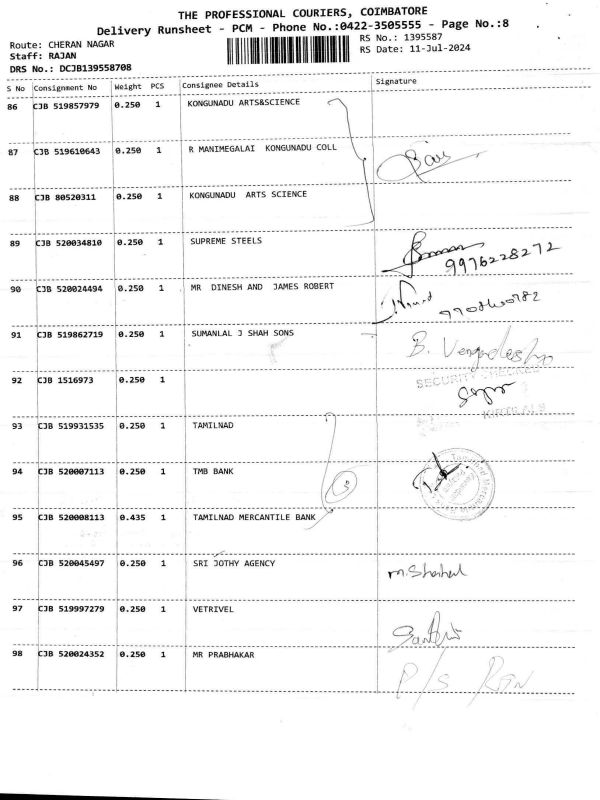 THE PROFESSIONAL COURIERS, COIMBATORE
Delivery Runsheet - PCM - Phone No.:0422-3505555 - Page No.:8
Route: CHERAN NAGAR
Staff: RAJAN
DRS No.: DCJB139558708
RS No.: 1395587
RS Date: 11-Jul-2024
S No Consignment No Weight PCS Consignee Details Signature
86 CJB 519857979 0.250 1 KONGUNADU ARTS&SCIENCE
87 CJB 519610643 0.250 1 R MANIMEGALAI KONGUNADU COLL
88 CJB 80520311 0.250 1 KONGUNADU ARTS SCIENCE
89 CJB 520034810 0.250 1 SUPREME STEELS
9976228272
90 CJB 520024494 0.250 1 MR DINESH AND JAMES ROBERT
91 CJB 519862719 0.250 1 SUMANLAL J SHAH SONS
B.
SECURITY CHECKED
92 CJB 1516973 0.250 1
93 CJB 519931535 0.250 1 TAMILNAD
94 CJB 520007113 0.250 1 TMB BANK
3
95 CJB 520008113 0.435 1 TAMILNAD MERCANTILE BANK
96 CJB 520045497 0.250 1 SRI JOTHY AGENCY
97 CJB 519997279 0.250 1 VETRIVEL
98 CJB 520024352 0.250 1 MR PRABHAKAR
P/S